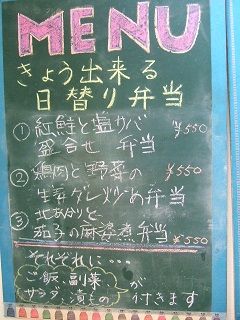 MENU
きょう出来る
日替り弁当
① 紅鮭と塩サバ
盛合せ 弁当 ¥550
② 鶏肉と野菜の
生姜ダレ炒め弁当 ¥550
③ 北あかりと
茄子の麻婆煮弁当 ¥550
それぞれに・・・
ご飯 副菜
サラダ 漬もの が付きます